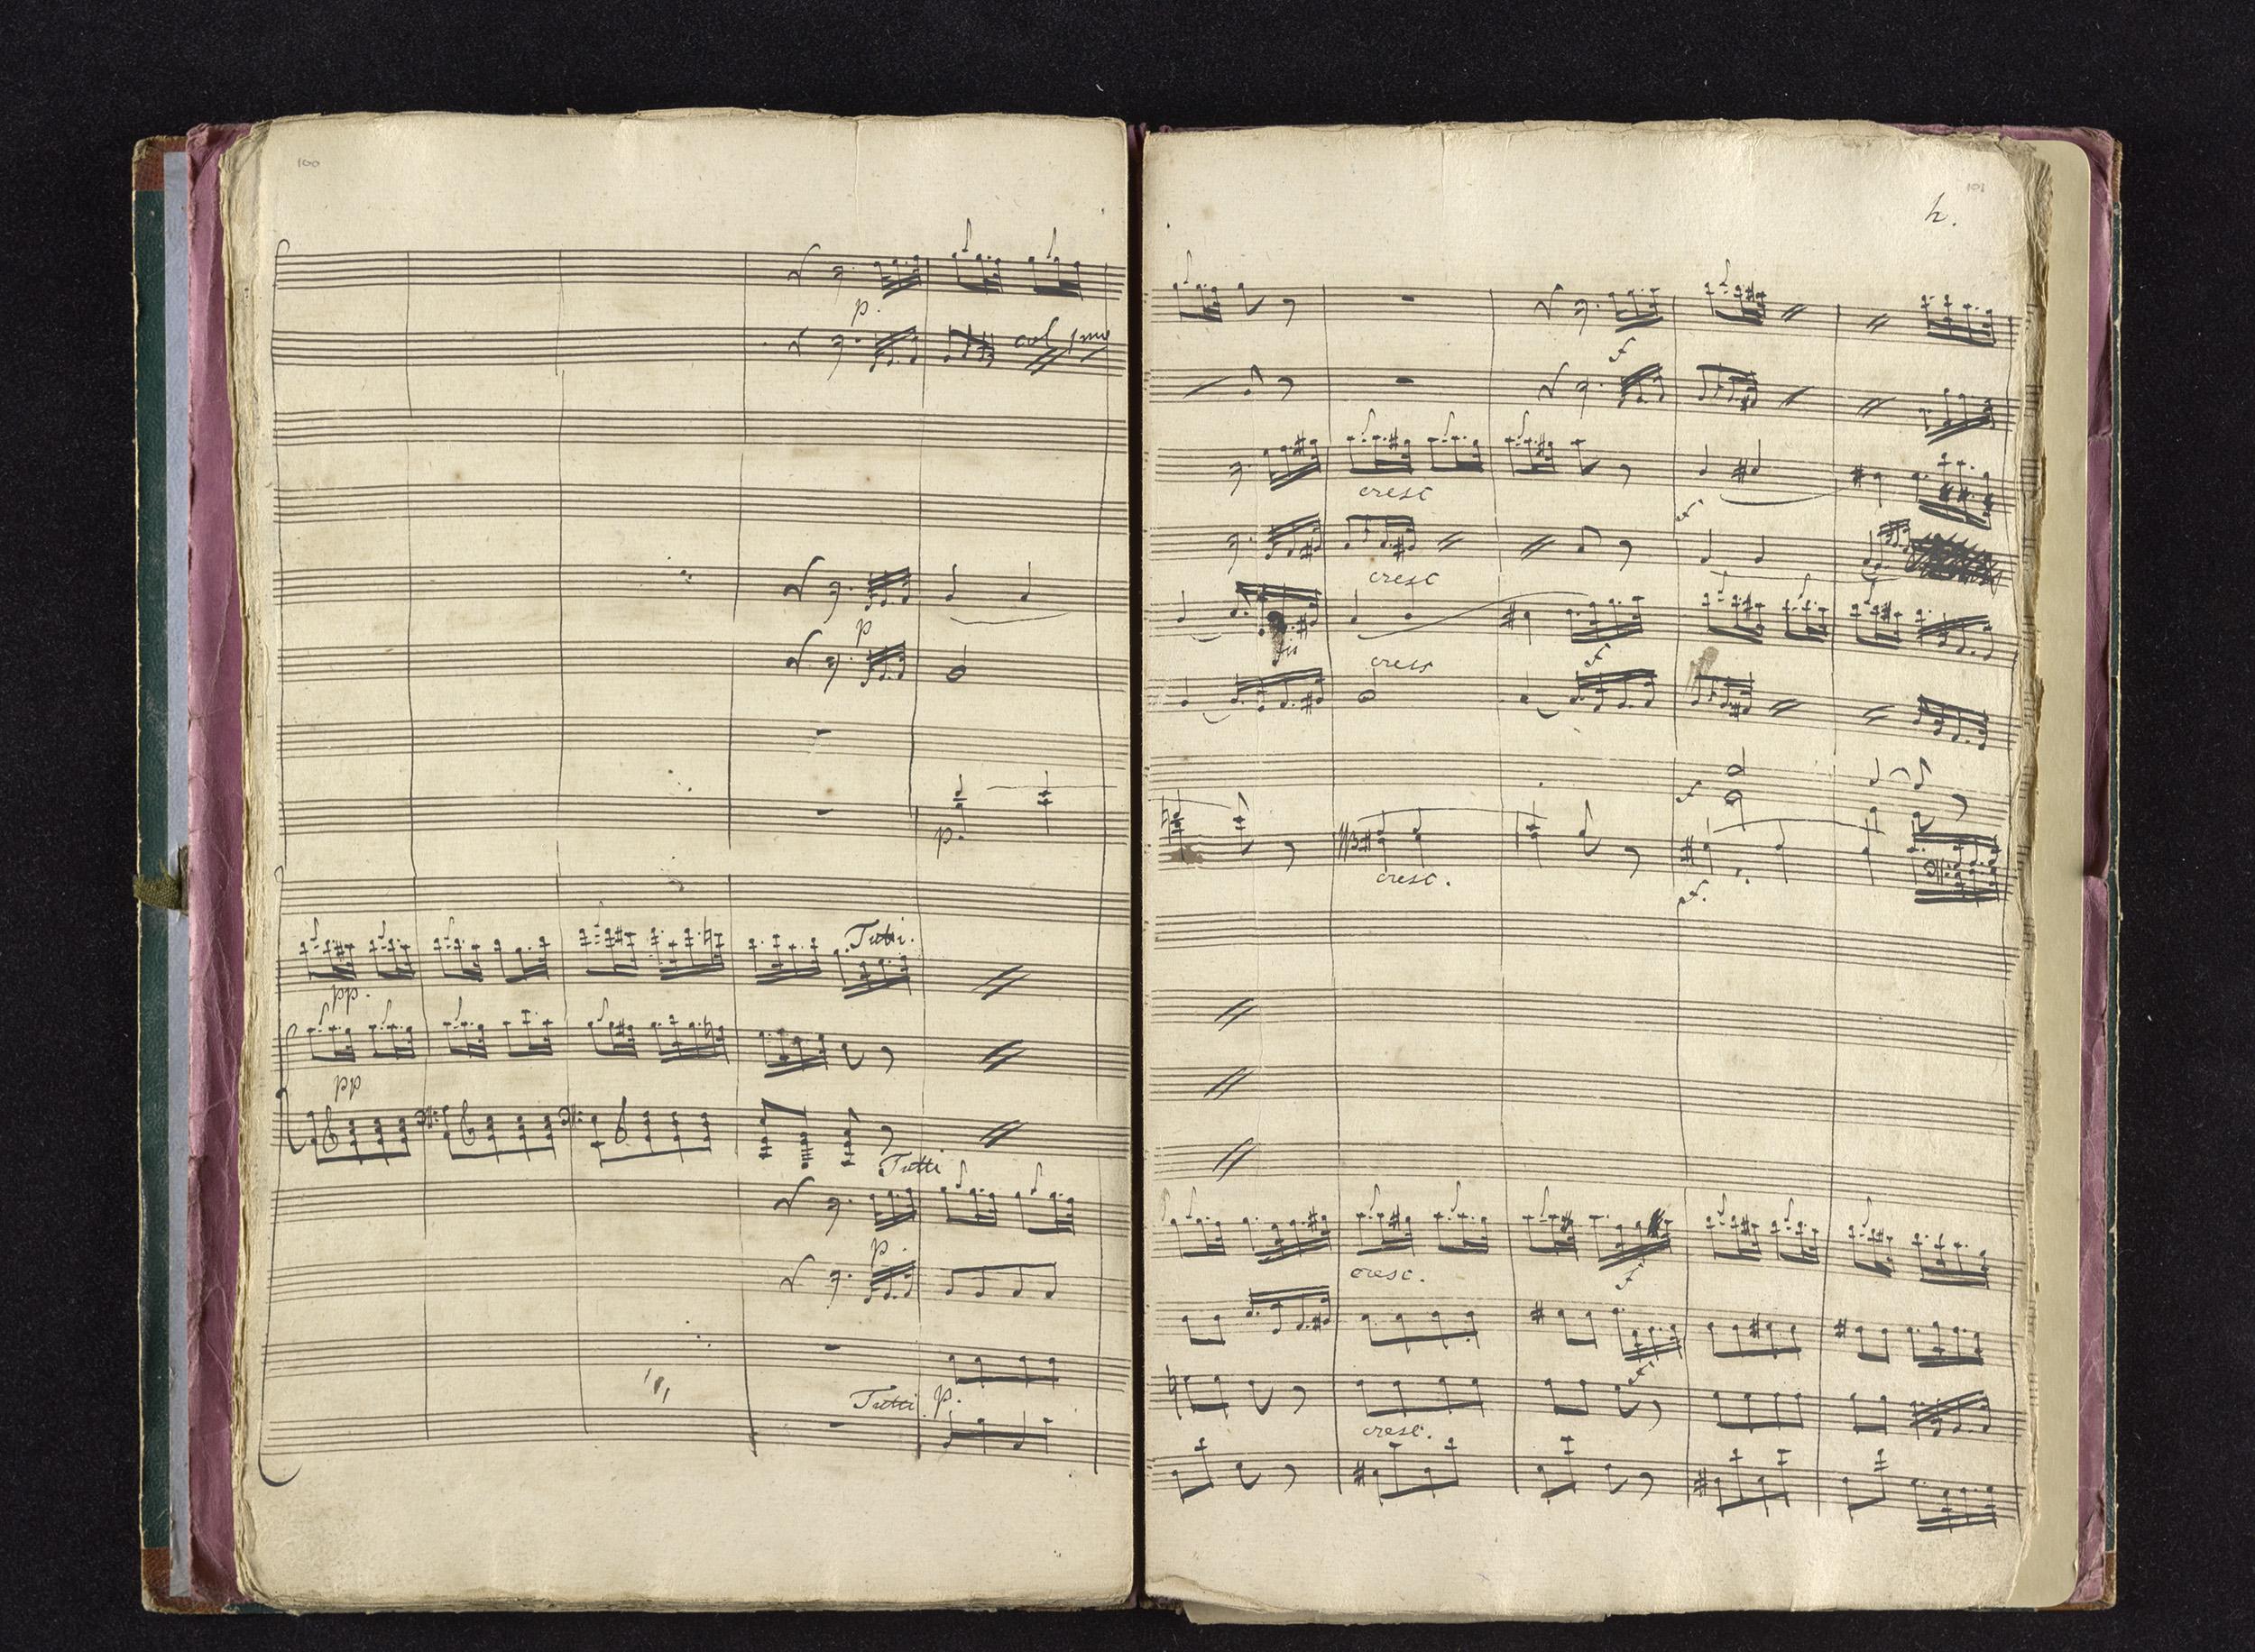 100
p.
col 1mo
p
p.
Tutti.
pp.
pp
Tutti
p.
Tutti. p.
101
h.
f
cresc
f
cresc
fis
cresc
f
f
cresc.
f.
cresc.
f
f
cresc.